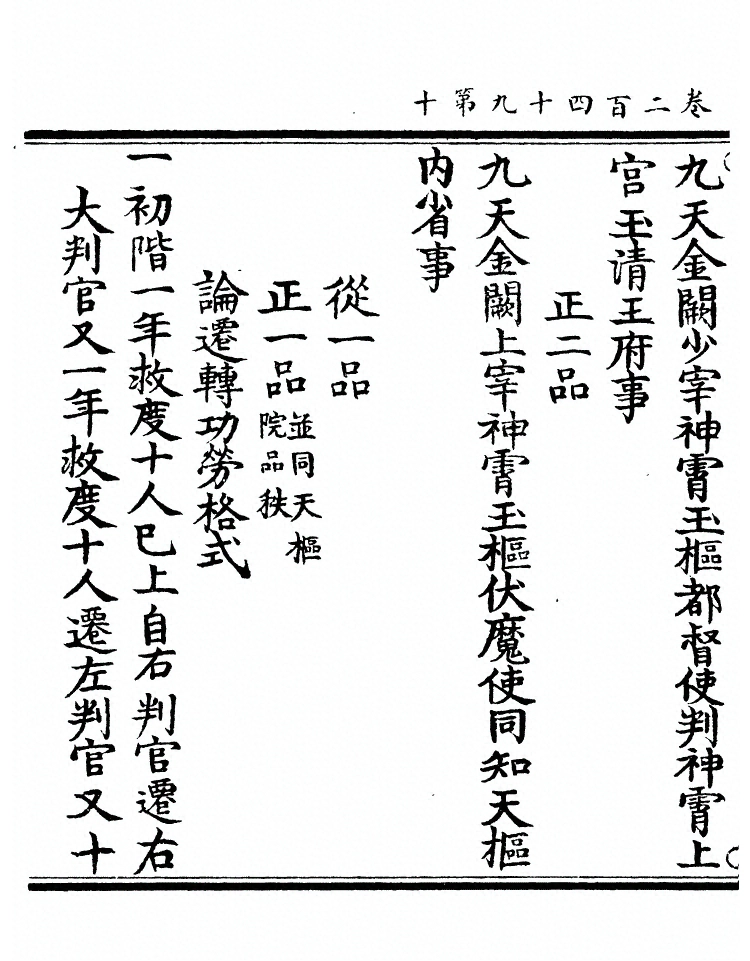 卷二百四十九第十
九天金闕少宰神霄玉樞都督使判神霄上
宮玉清王府事
正二品
九天金闕上宰神霄玉樞伏魔使同知天樞
內省事
從一品
正一品並同天樞院品秩
論遷轉功勞格式
一初階一年救度十人已上自右判官遷右
大判官又一年救度十人遷左判官又十